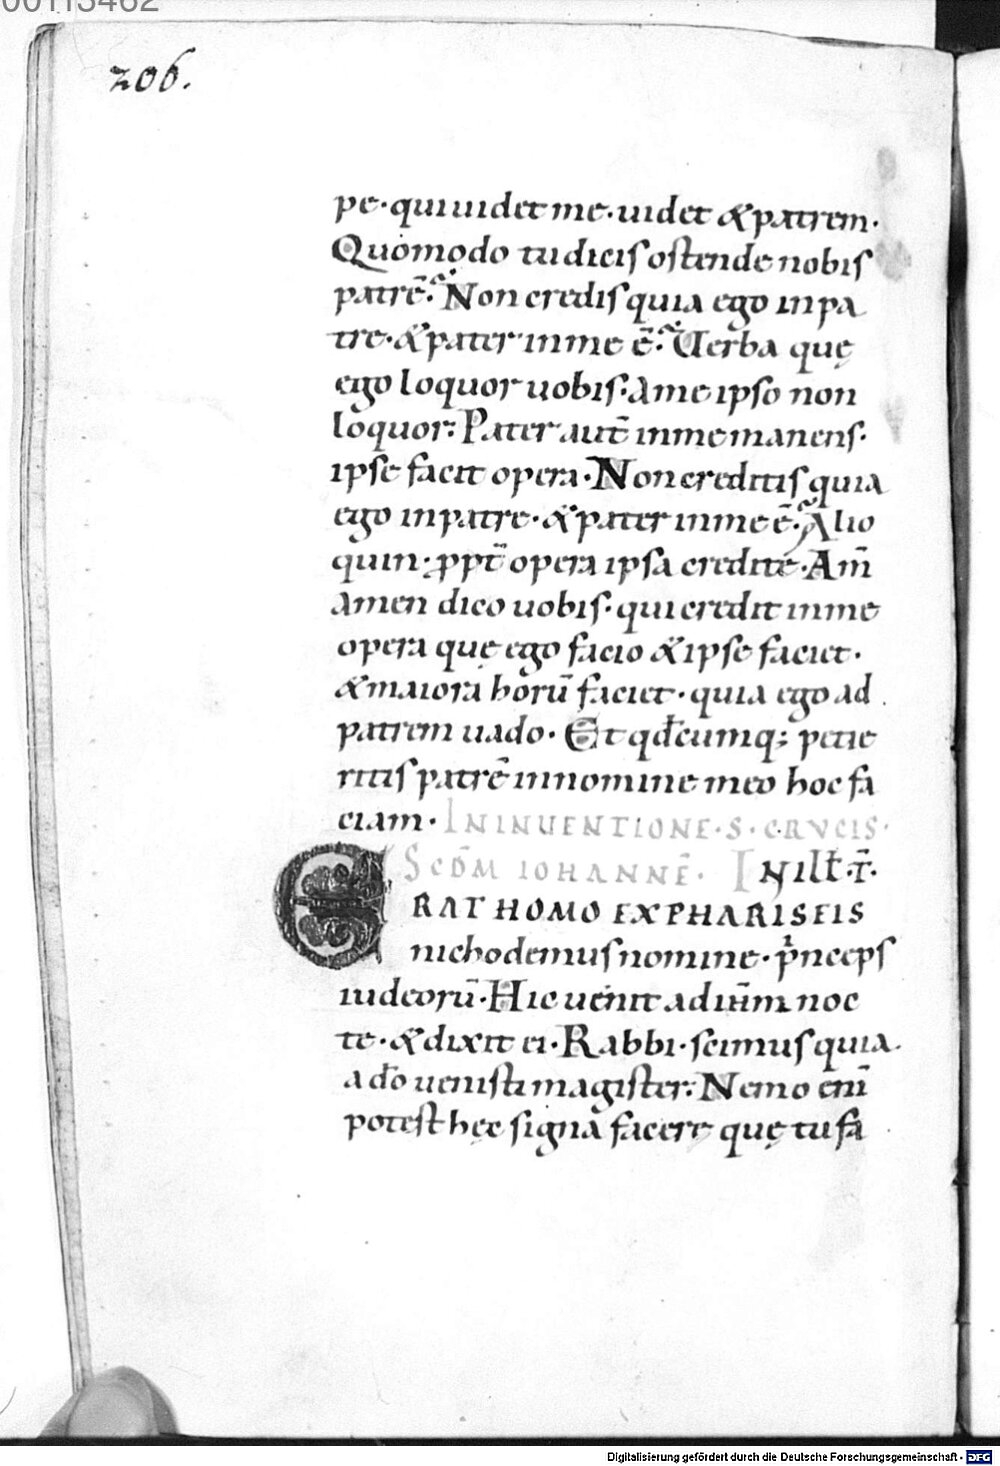 00113462
206.
pe· qui uidet me· uidet & patrem·
Quomodo tu dicis ostende nobis
patrē? Non credis quia ego in pa
tre· & pater in me ē? Uerba quę
ego loquor uobis· a me ipso non
loquor· Pater aut̄ in me manens·
ipse facit opera· Non creditis quia
ego in patre· & pater in me ē? Alio
quin· ꝓpt̄ opera ipsa credite· Am̄
amen dico uobis· qui credit in me
opera quę ego facio & ipse faciet·
& maiora horū faciet· quia ego ad
patrem uado· Et qđcumq; petie
ritis patrē in nomine meo hoc fa
ciam· IN INUENTIONE· S· CRVCIS·
SCDM̄ IOHANNĒ· IN ILŁ· T̄·
ERAT HOMO EX PHARISEIS
nichodemus nomine· p̍nceps
iudeorū· Hic uenit ad ihm̄ noc
te· & dixit ei· Rabbi· scimus quia
a do̅ uenisti magister· Nemo enī
potest hęc signa facere quę tu fa
Digitalisierung gefördert durch die Deutsche Forschungsgemeinschaft - DFG